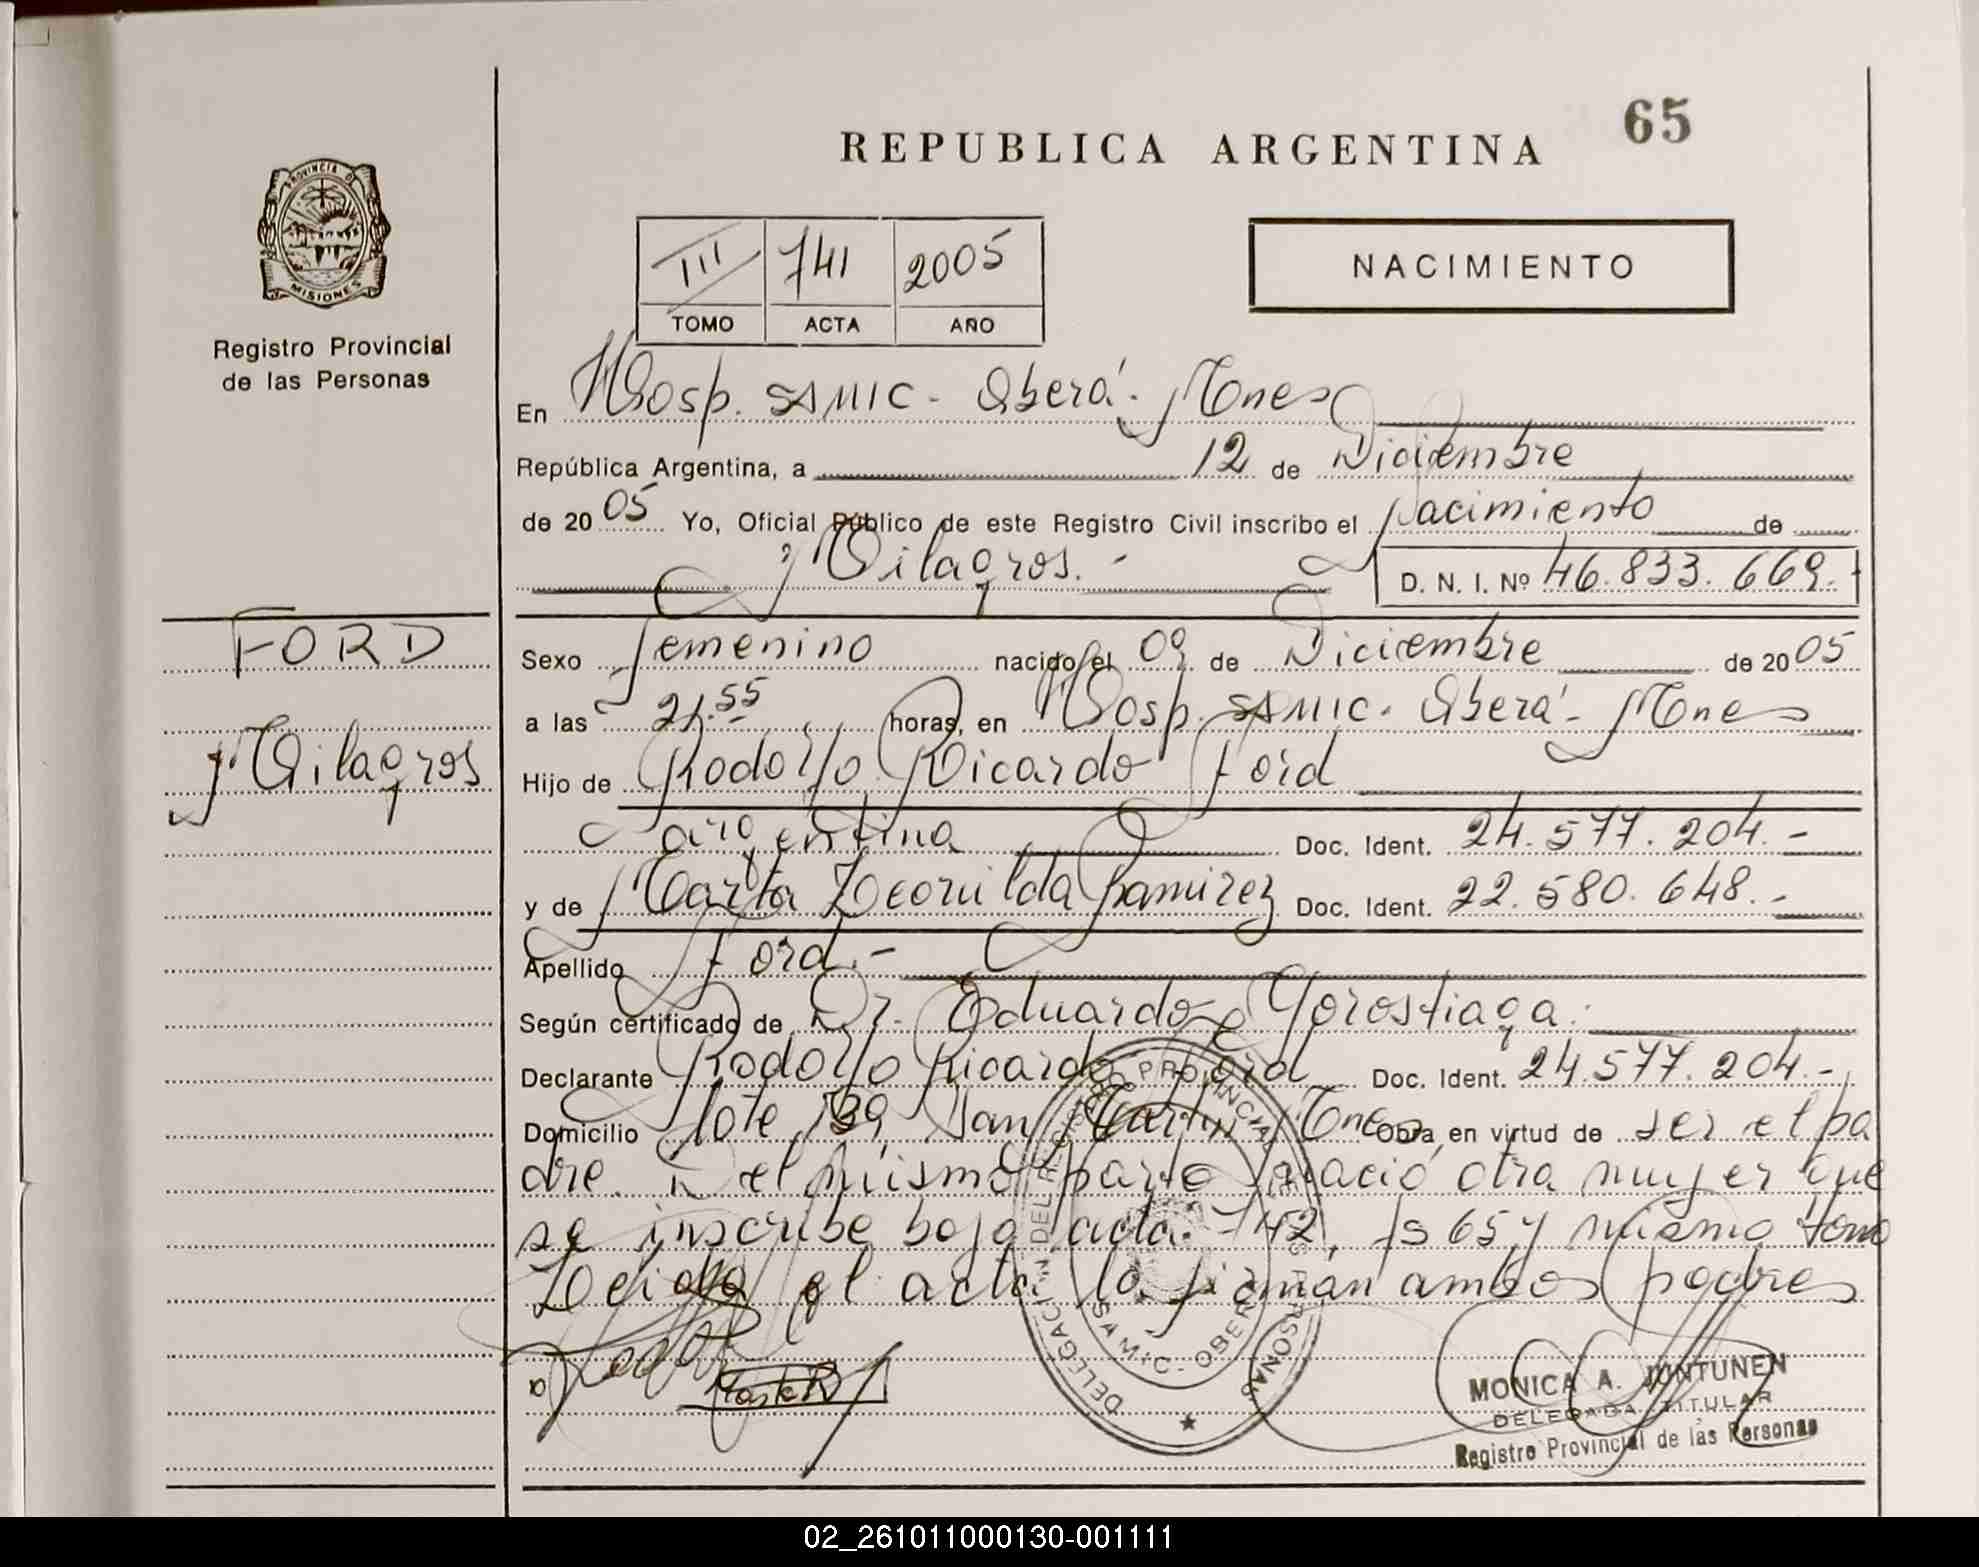 65
REPUBLICA ARGENTINA
PROVINCIA DE
MISIONES
Registro Provincial
de las Personas
III 741 2005
TOMO ACTA AÑO
NACIMIENTO
En Hosp. SAMIC - Oberá - Mnes
República Argentina, a 12 de Diciembre
de 20 05 Yo, Oficial Público de este Registro Civil inscribo el Nacimiento de
Milagros. - D. N. I. Nº 46.833.669.
FORD
Milagros
Sexo femenino nacido el 09 de Diciembre de 20 05
a las 21.55 horas, en Hosp. SAMIC. Oberá - Mnes
Hijo de Rodolfo Ricardo Ford
argentina Doc. Ident. 24.577.204.-
y de Marta Ramirez Doc. Ident. 22.580.648.-
Apellido Ford.-
Según certificado de Dr. Eduardo Gorostiaga.
Declarante Rodolfo Ricardo Ford Doc. Ident. 24.577.204.-
Domicilio lote 139 San Martin Mnes Obra en virtud de ser el pa
dre. Del mismo parto nació otra mujer que
se inscribe bajo acta 742, fs 65 y mismo tomo
Leida el acta la firman ambos padres
DELEGACION DEL REGISTRO PROVINCIAL DE LAS PERSONAS
SAMIC - OBERA
MONICA A. JUNTUNEN
DELEGADA TITULAR
Registro Provincial de las Personas
02_261011000130-001111